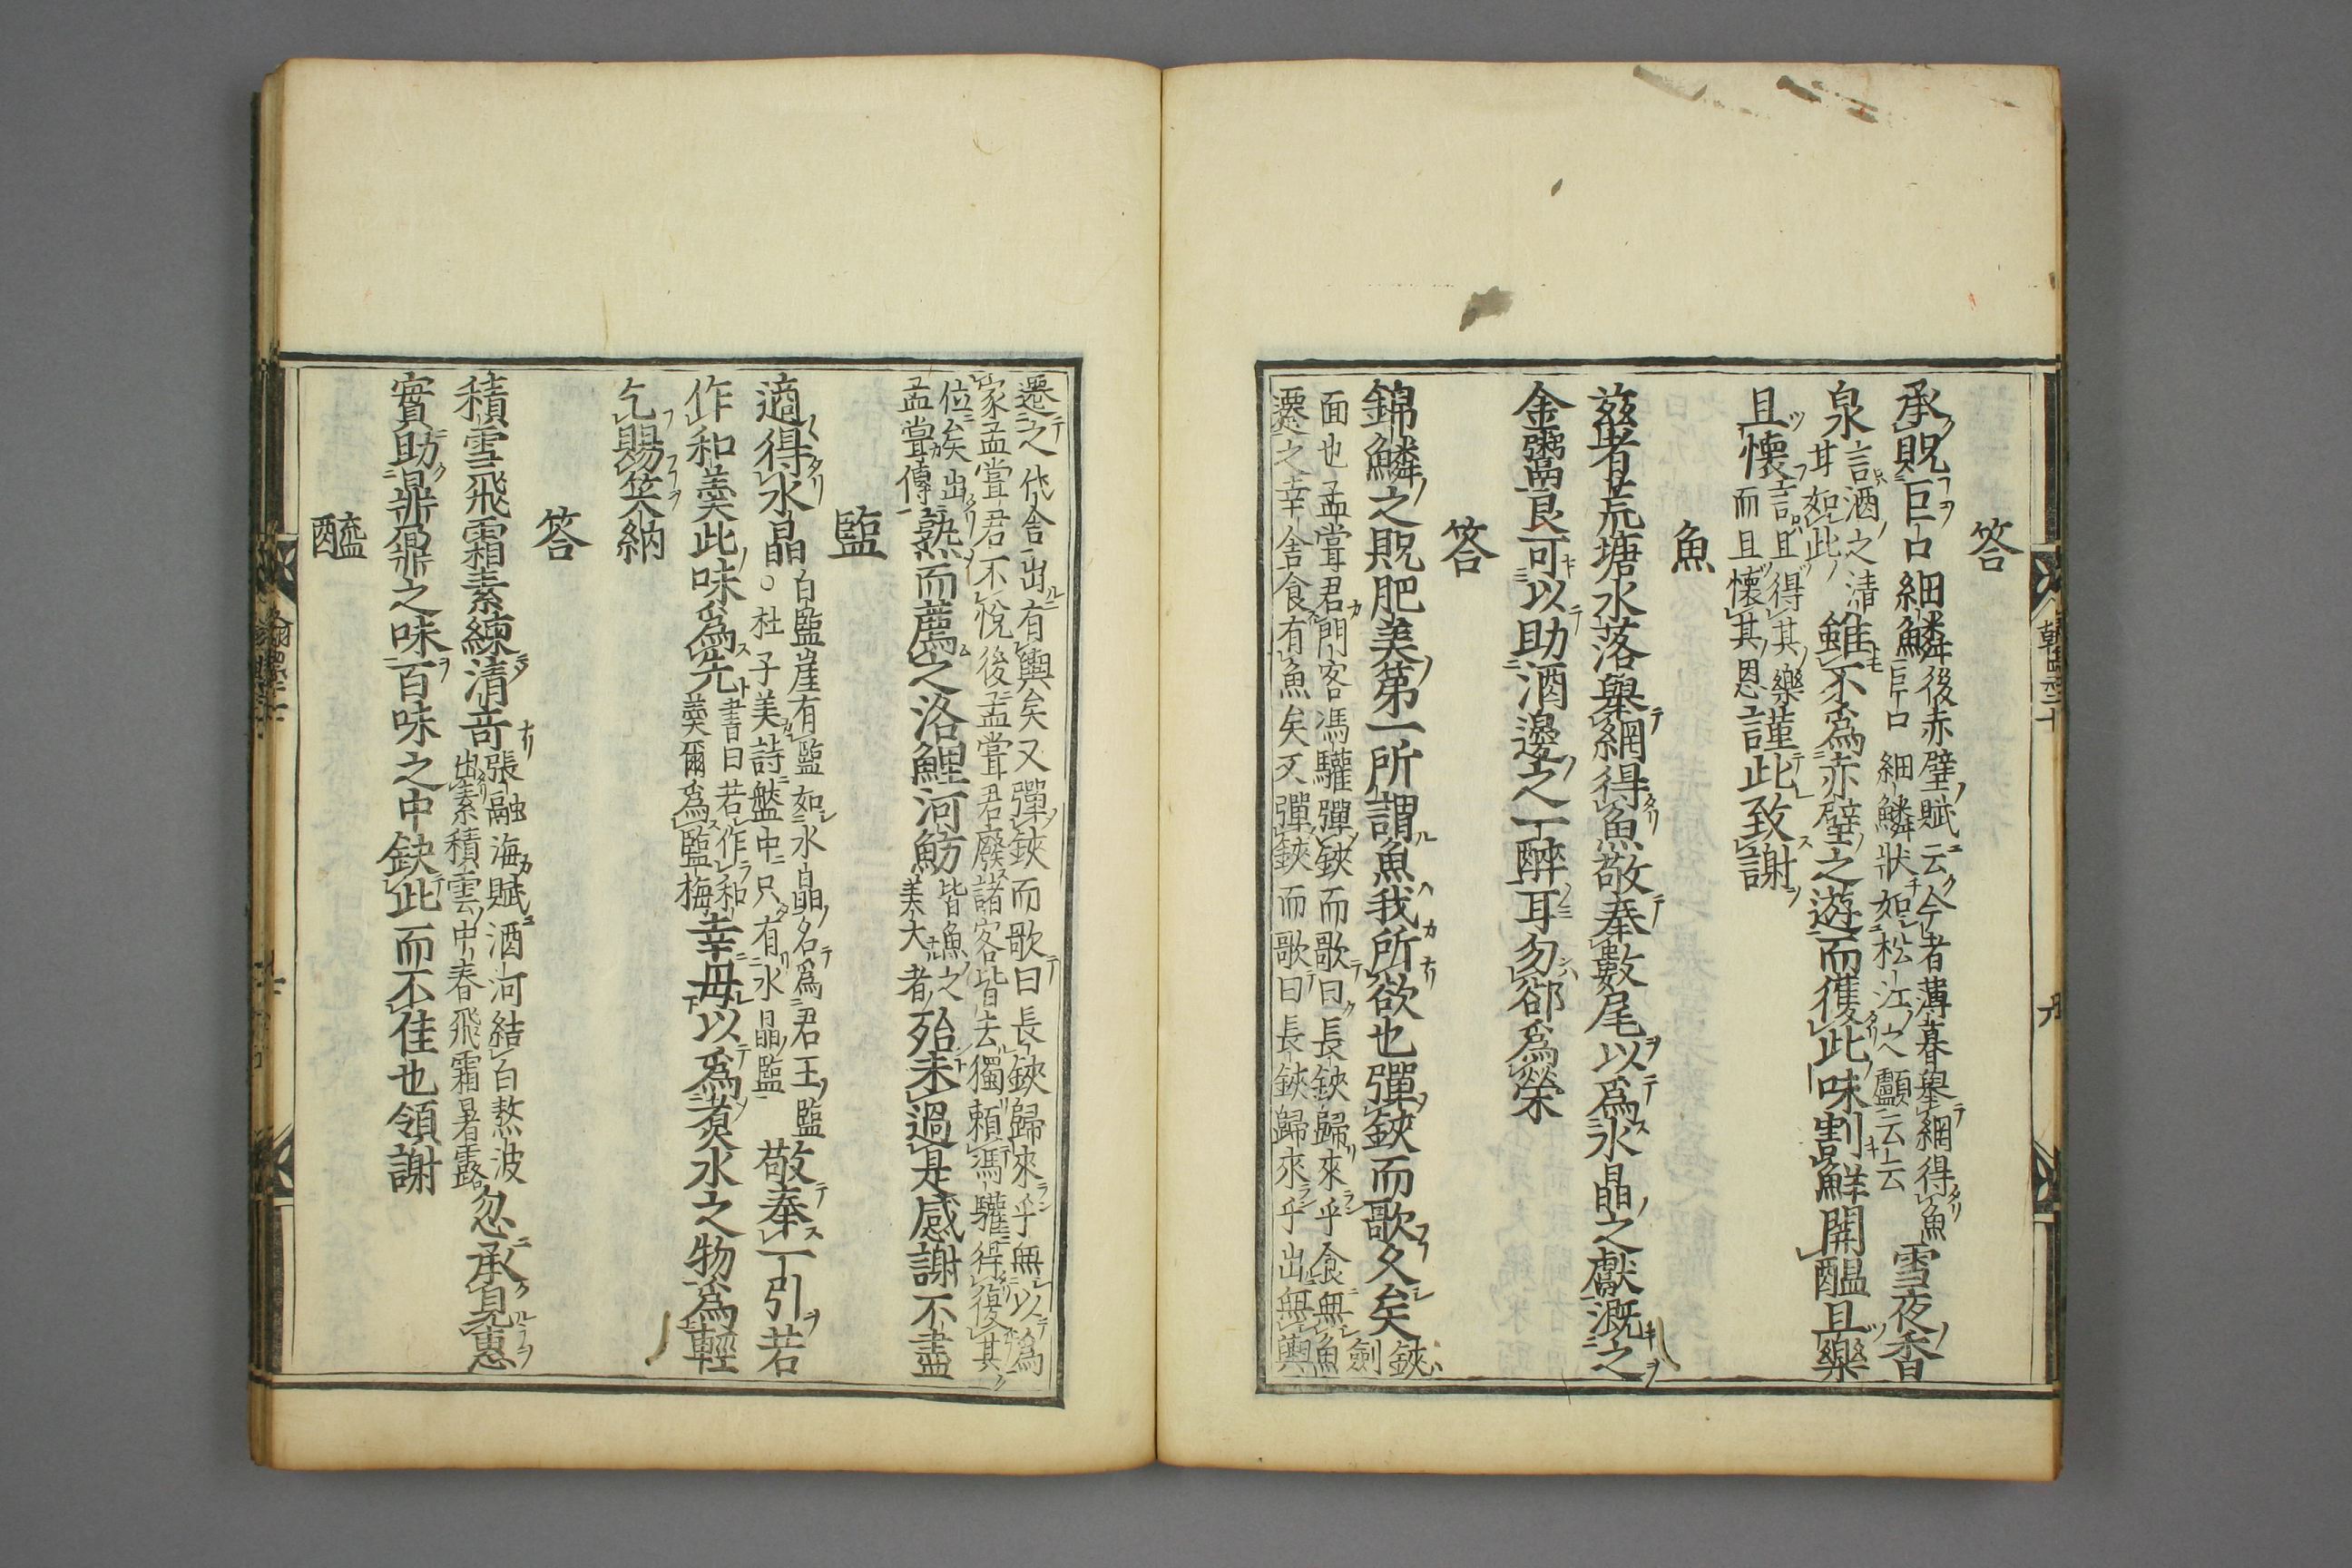 答
承貺巨口細鱗後赤壁賦云今者薄暮舉網得魚巨口細鱗狀如松江之鱸云云雪夜香
泉言酒之清耳如此雖不為赤壁之遊而獲此味割鮮開醞且樂
且懷言且得其樂而且懷其恩謹此致謝
魚
茲者荒塘水落舉網得魚敬奉數尾以為氷晶之獻溉之
金鬵啇良可以助酒邊之一醉耳勿郤為榮
答
錦鱗之貺肥美第一所謂魚我所欲也彈鋏而歌久矣鋏劍
面也孟甞君門客馮驩彈鋏而歌曰長鋏歸來乎食無魚
遷之幸舍食有魚矣又彈鋏而歌曰長鋏歸來乎出無輿
遷之代舍出有輿矣又彈鋏而歌曰長鋏歸來乎無以為
家孟甞君不悅後孟甞君廢諸客皆去獨賴馮驩得復其
位矣出孟甞傳熟而薦之洛鯉河魴皆魚之美大者殆未過是感謝不盡
監
適得水晶白監崖有監如水晶名為君王監○杜子美詩盤中只有水晶監敬奉一引若
作和羹此味為先書曰若作和羹爾為監梅幸毋以為煑水之物為輕
乞賜笑納
答
積雪飛霜素練清竒張融海賦酒河結白熬波出素積雲中春飛霜暑露忽承見惠
實助鼎鼐之味百味之中缺此而不佳也領謝
醯